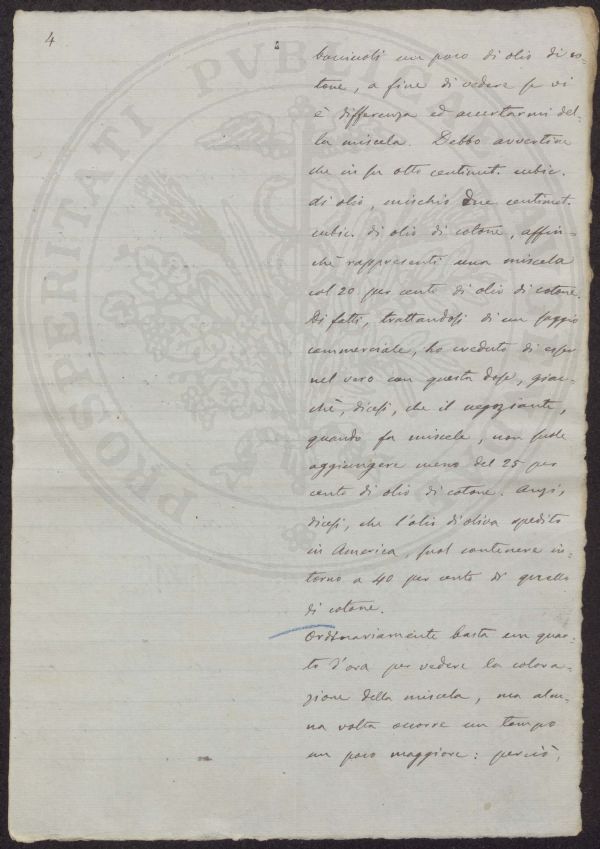 4
boccicoli un poco di olio di co-
tone, a fine di vedere se vi
è differenza ed accertarmi del-
la miscela. Debbo avvertire
che in su otto centimet. cubic.
di olio, mischio due centimet.
cubic. di olio di cotone, affin-
chè rappresenti una miscela
col 20 per cento di olio di cotone.
Di fatti, trattandosi di un saggio
commerciale, ho creduto di esser
nel vero con questa dose, giac-
chè, dicesi, che il negoziante,
quando fa miscele, non suole
aggiungere meno del 25 per
cento di olio di cotone. Anzi,
dicesi, che l'olio di oliva spedito
in America, suol contenere in-
torno a 40 per cento di quello
di cotone.
Ordinariamente basta un quar-
to d'ora per vedere la colora-
zione della miscela, ma alcu-
na volta occorre un tempo
un poco maggiore: perciò,
PROSPERITATI PVBLICAE